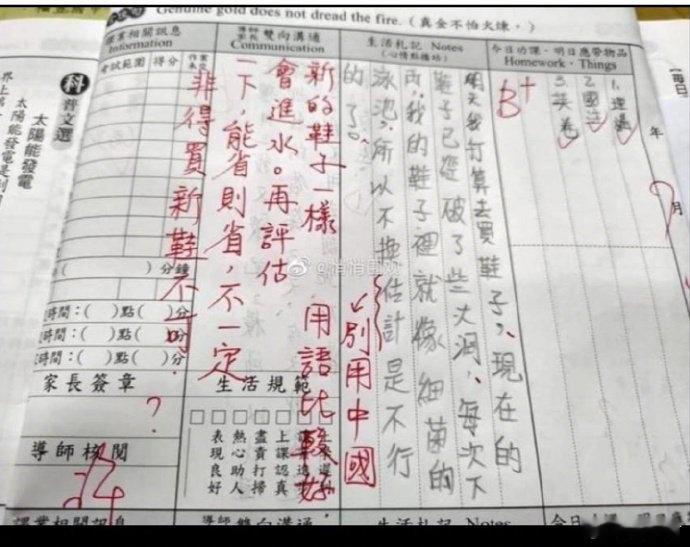 Genuine gold does not dread the fire. (真金不怕火煉。)
今日功課‧明日應帶物品
Homework‧Things
年
月
B+
生活札記 Notes
(心情點播站)
明天我打算去買鞋子,現在的
鞋子已經破了些大洞,每次下
雨,我的鞋子裡就像細菌的
泳池,所以不換估計是不行
的了。
別用中國
用語比較好.
雙向溝通
Communication
新的鞋子一樣
會進水。再評估
一下,能省則省,不一定
非得買新鞋不可.
生活規範
上課認真
盡責打掃
熱心助人
表現良好
課業相關訊息
Information
考試範圍
得分
)分鐘
時間:( )點( )分
時間:( )點( )分
時間:( )點( )分
家長簽章
?
導師核閱
科
普文選
太陽能發電
課業相關訊息
雙向溝通
生活札記 Notes